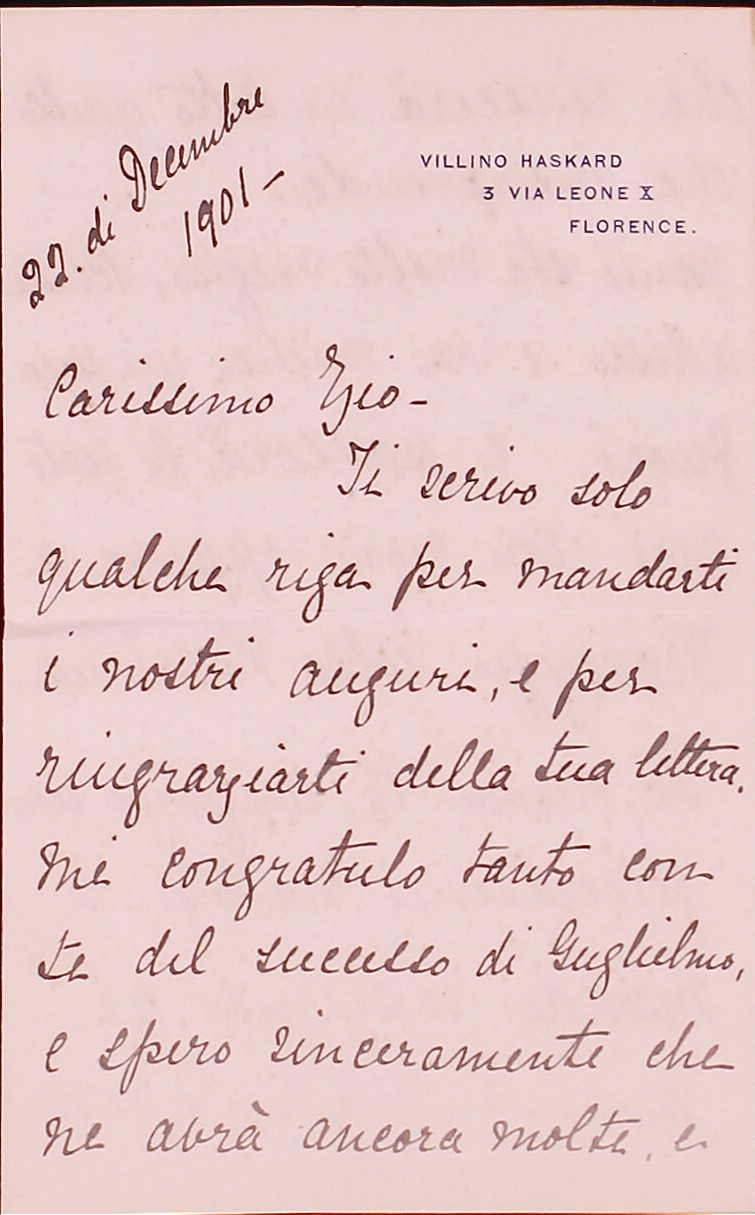 22. di Decembre
1901 -
VILLINO HASKARD
3 VIA LEONE X
FLORENCE.
Carissimo Zio -
Ti scrivo solo
qualche riga per mandarti
i nostri auguri, e per
ringraziarti della tua lettera.
Mi congratulo tanto con
te del successo di Guglielmo,
e spero sinceramente che
ne avrà ancora molte, e